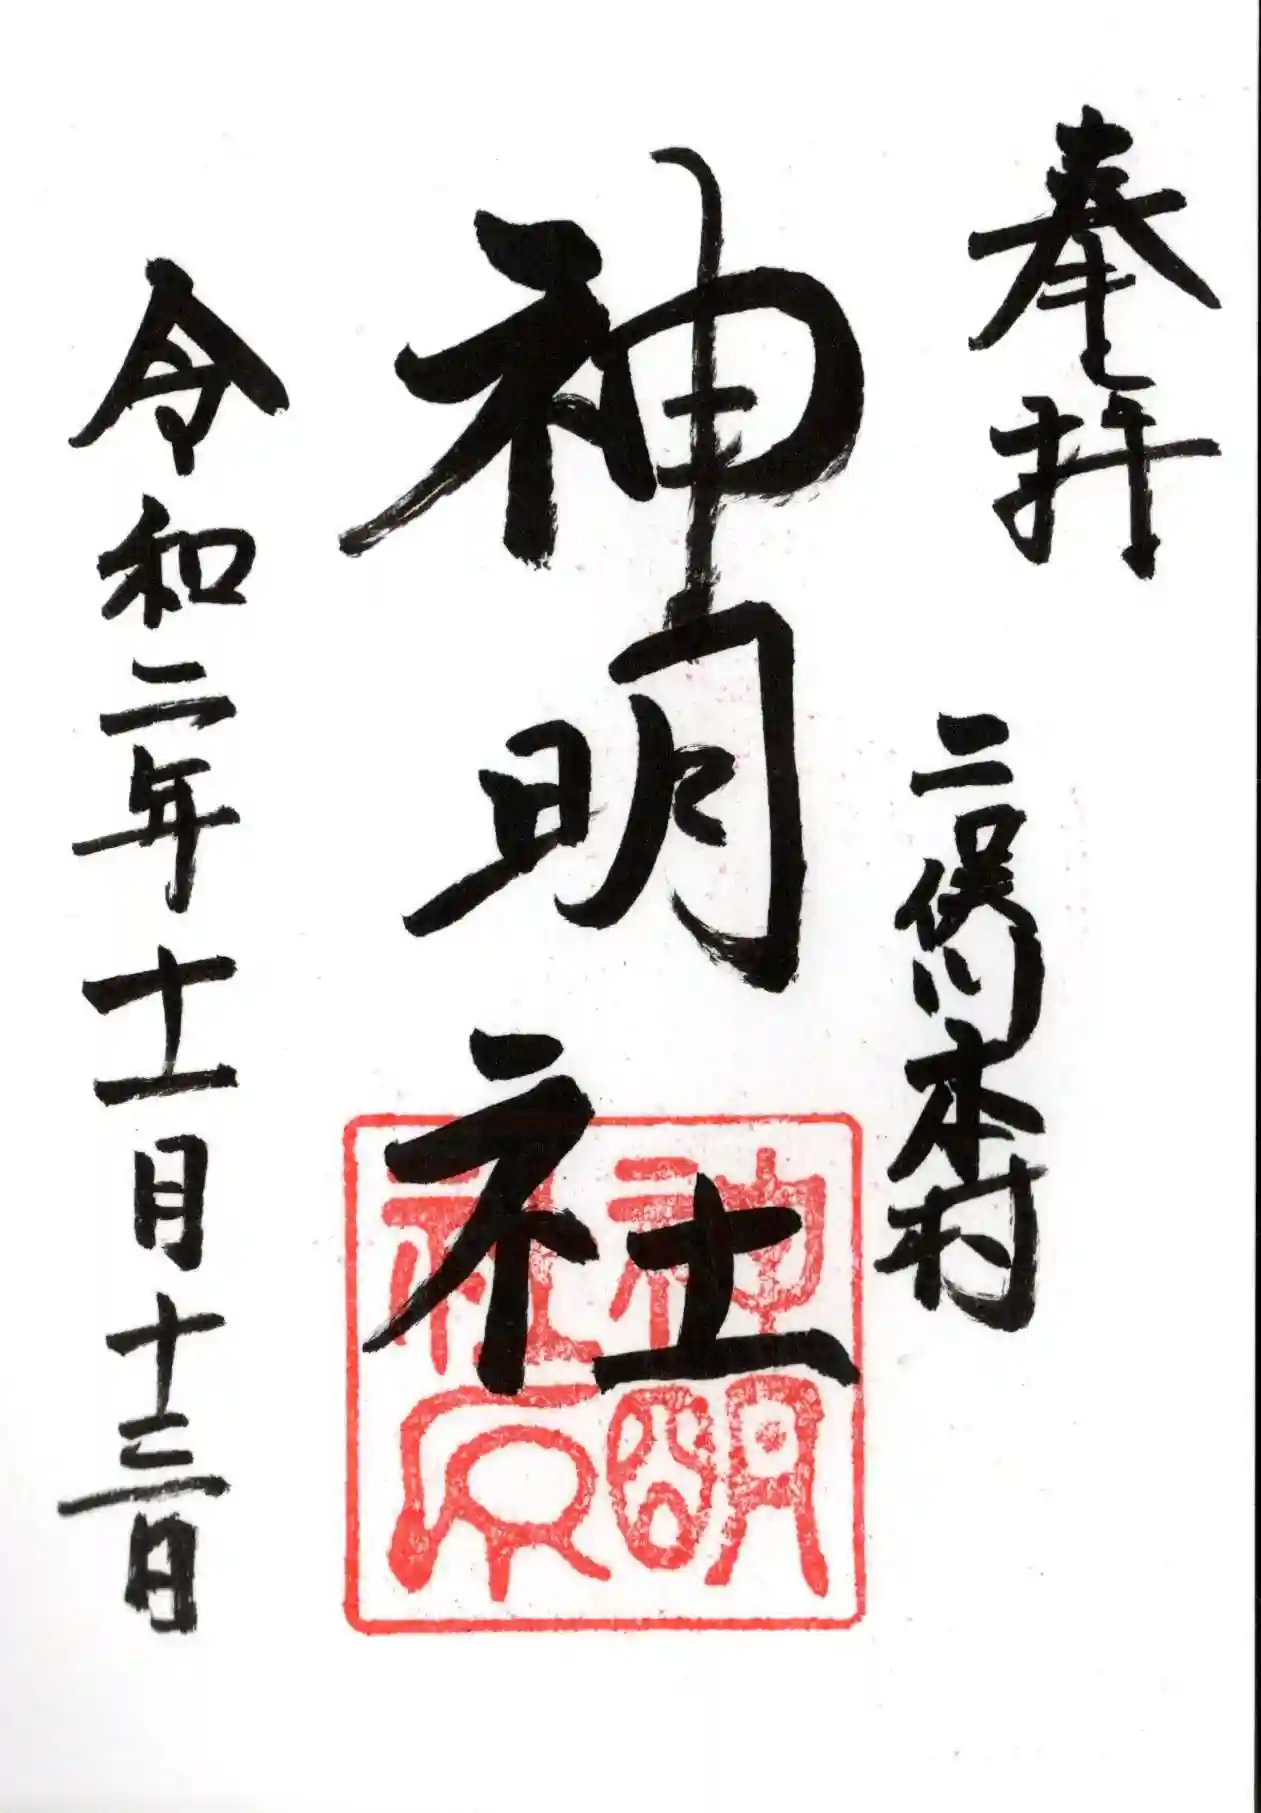 奉拝
二俣川本村
神明社
令和二年十一月十三日
神明
社